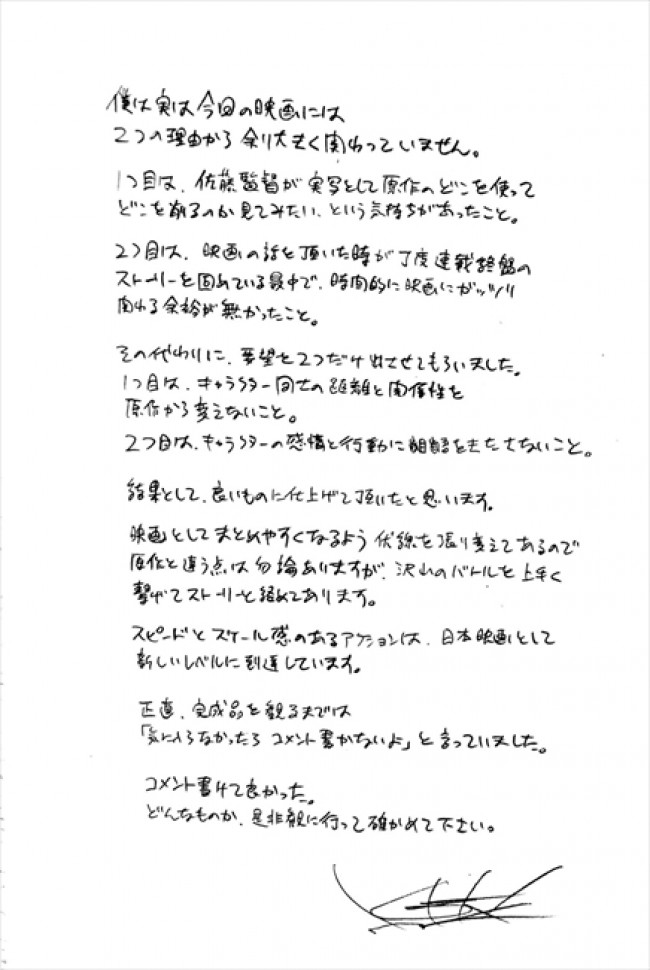 僕は実は今回の映画には
2つの理由から余り大きく関わっていません。
1つ目は、佐藤監督が実写として原作のどこを使って
どこを削るのか見てみたい、という気持ちがあったこと。
2つ目は、映画の話を頂いた時が丁度連載終盤の
ストーリーを固めている最中で、時間的に映画にガッツリ
関われる余裕が無かったこと。
その代わりに、要望を2つだけ出させてもらいました。
1つ目は、キャラクター同士の距離と関係性を
原作から変えないこと。
2つ目は、キャラクターの感情と行動に齟齬をきたさないこと。
結果として、良いものに仕上げて頂いたと思います。
映画としてまとめやすくなるよう伏線を張り変えてあるので
原作と違う点は勿論ありますが、沢山のバトルを上手く
繋げてストーリーと絡めてあります。
スピードとスケール感のあるアクションは、日本映画として
新しいレベルに到達しています。
正直、完成品を観るまでは
「気に入らなかったらコメント書かないよ」と言っていました。
コメント書けて良かった。
どんなものか、是非観に行って確かめて下さい。